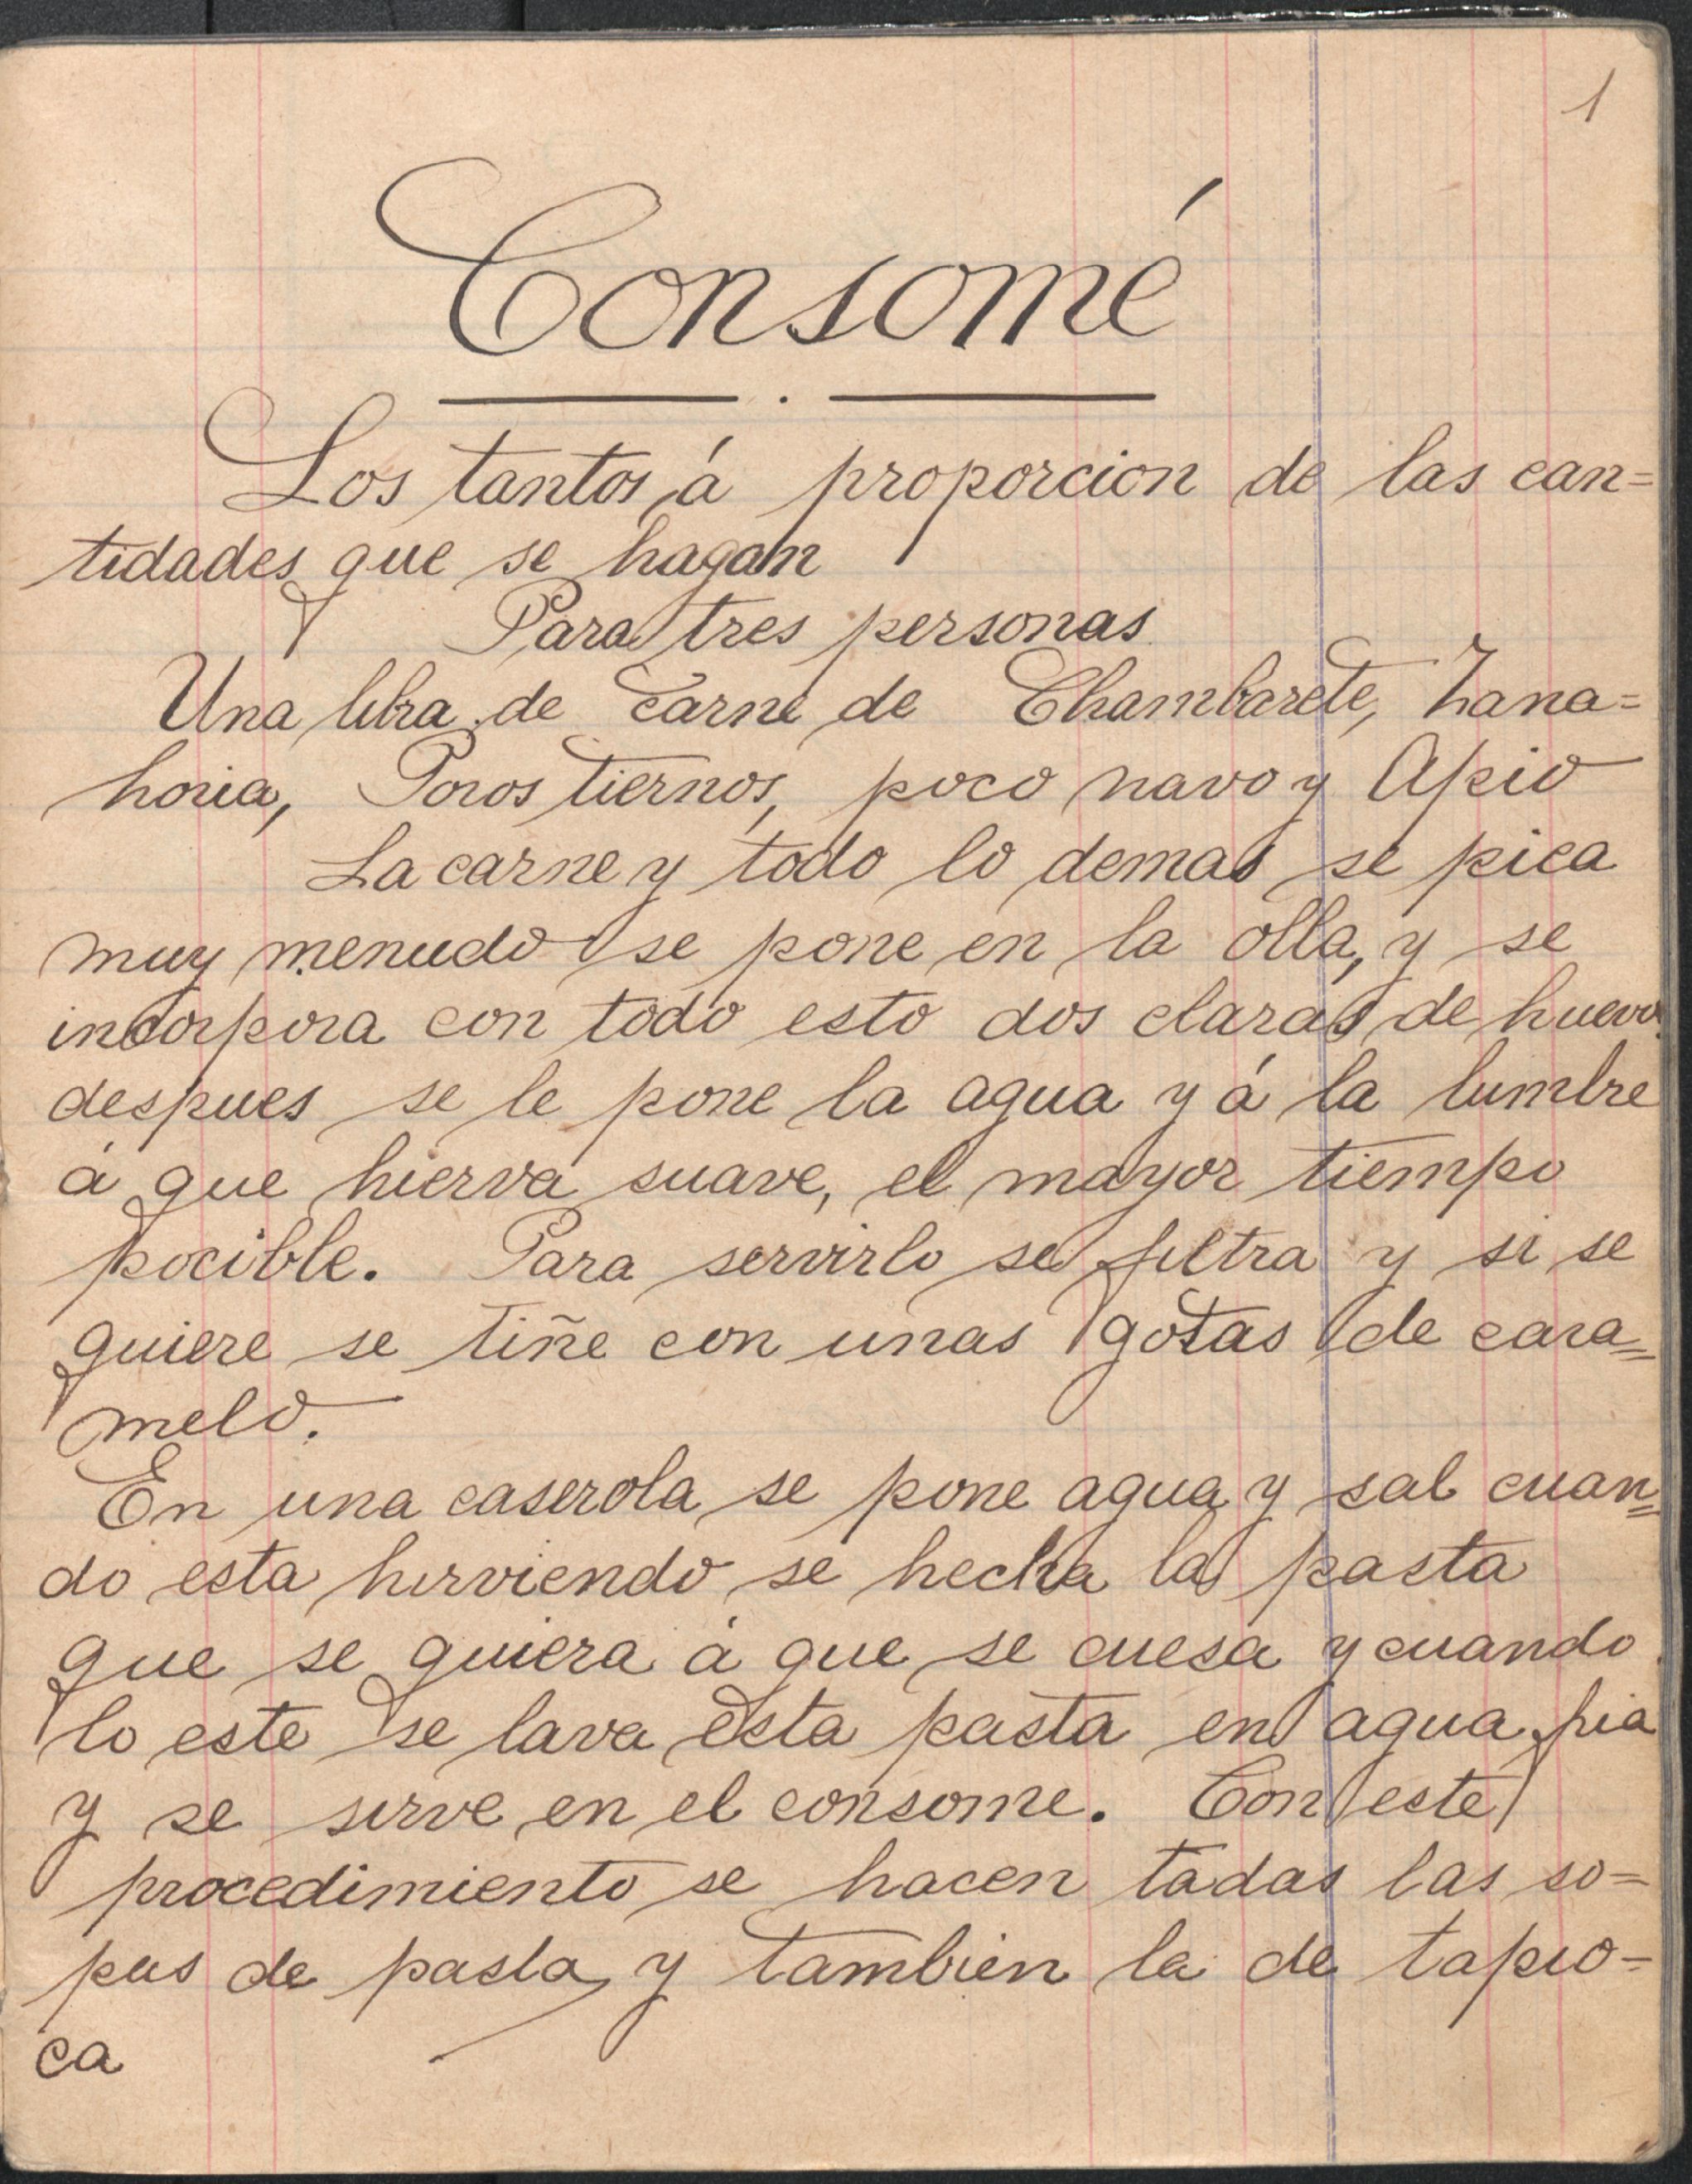 1
Consomé
Los tantos á proporcion de las can=
tidades que se hagan
Para tres personas
Una libra de carne de Chambarete, Zana=
horia, Poros tiernos, poco navo y Apio
La carne y todo lo demas se pica
muy menudo se pone en la olla, y se
incorpora con todo esto dos claras de huevo.
despues se le pone la agua y á la lumbre
á que hierva suave, el mayor tiempo
pocible. Para servirlo se filtra y si se
quiere se tiñe con unas gotas de cara=
melo.
En una caserola se pone agua y sal cuan=
do esta hirviendo se hecha la pasta
que se quiera á que se cuesa y cuando
lo este se lava esta pasta en agua fria
y se sirve en el consome. Con este
procedimiento se hacen todas las so=
pas de pasta y tambien la de tapio=
ca